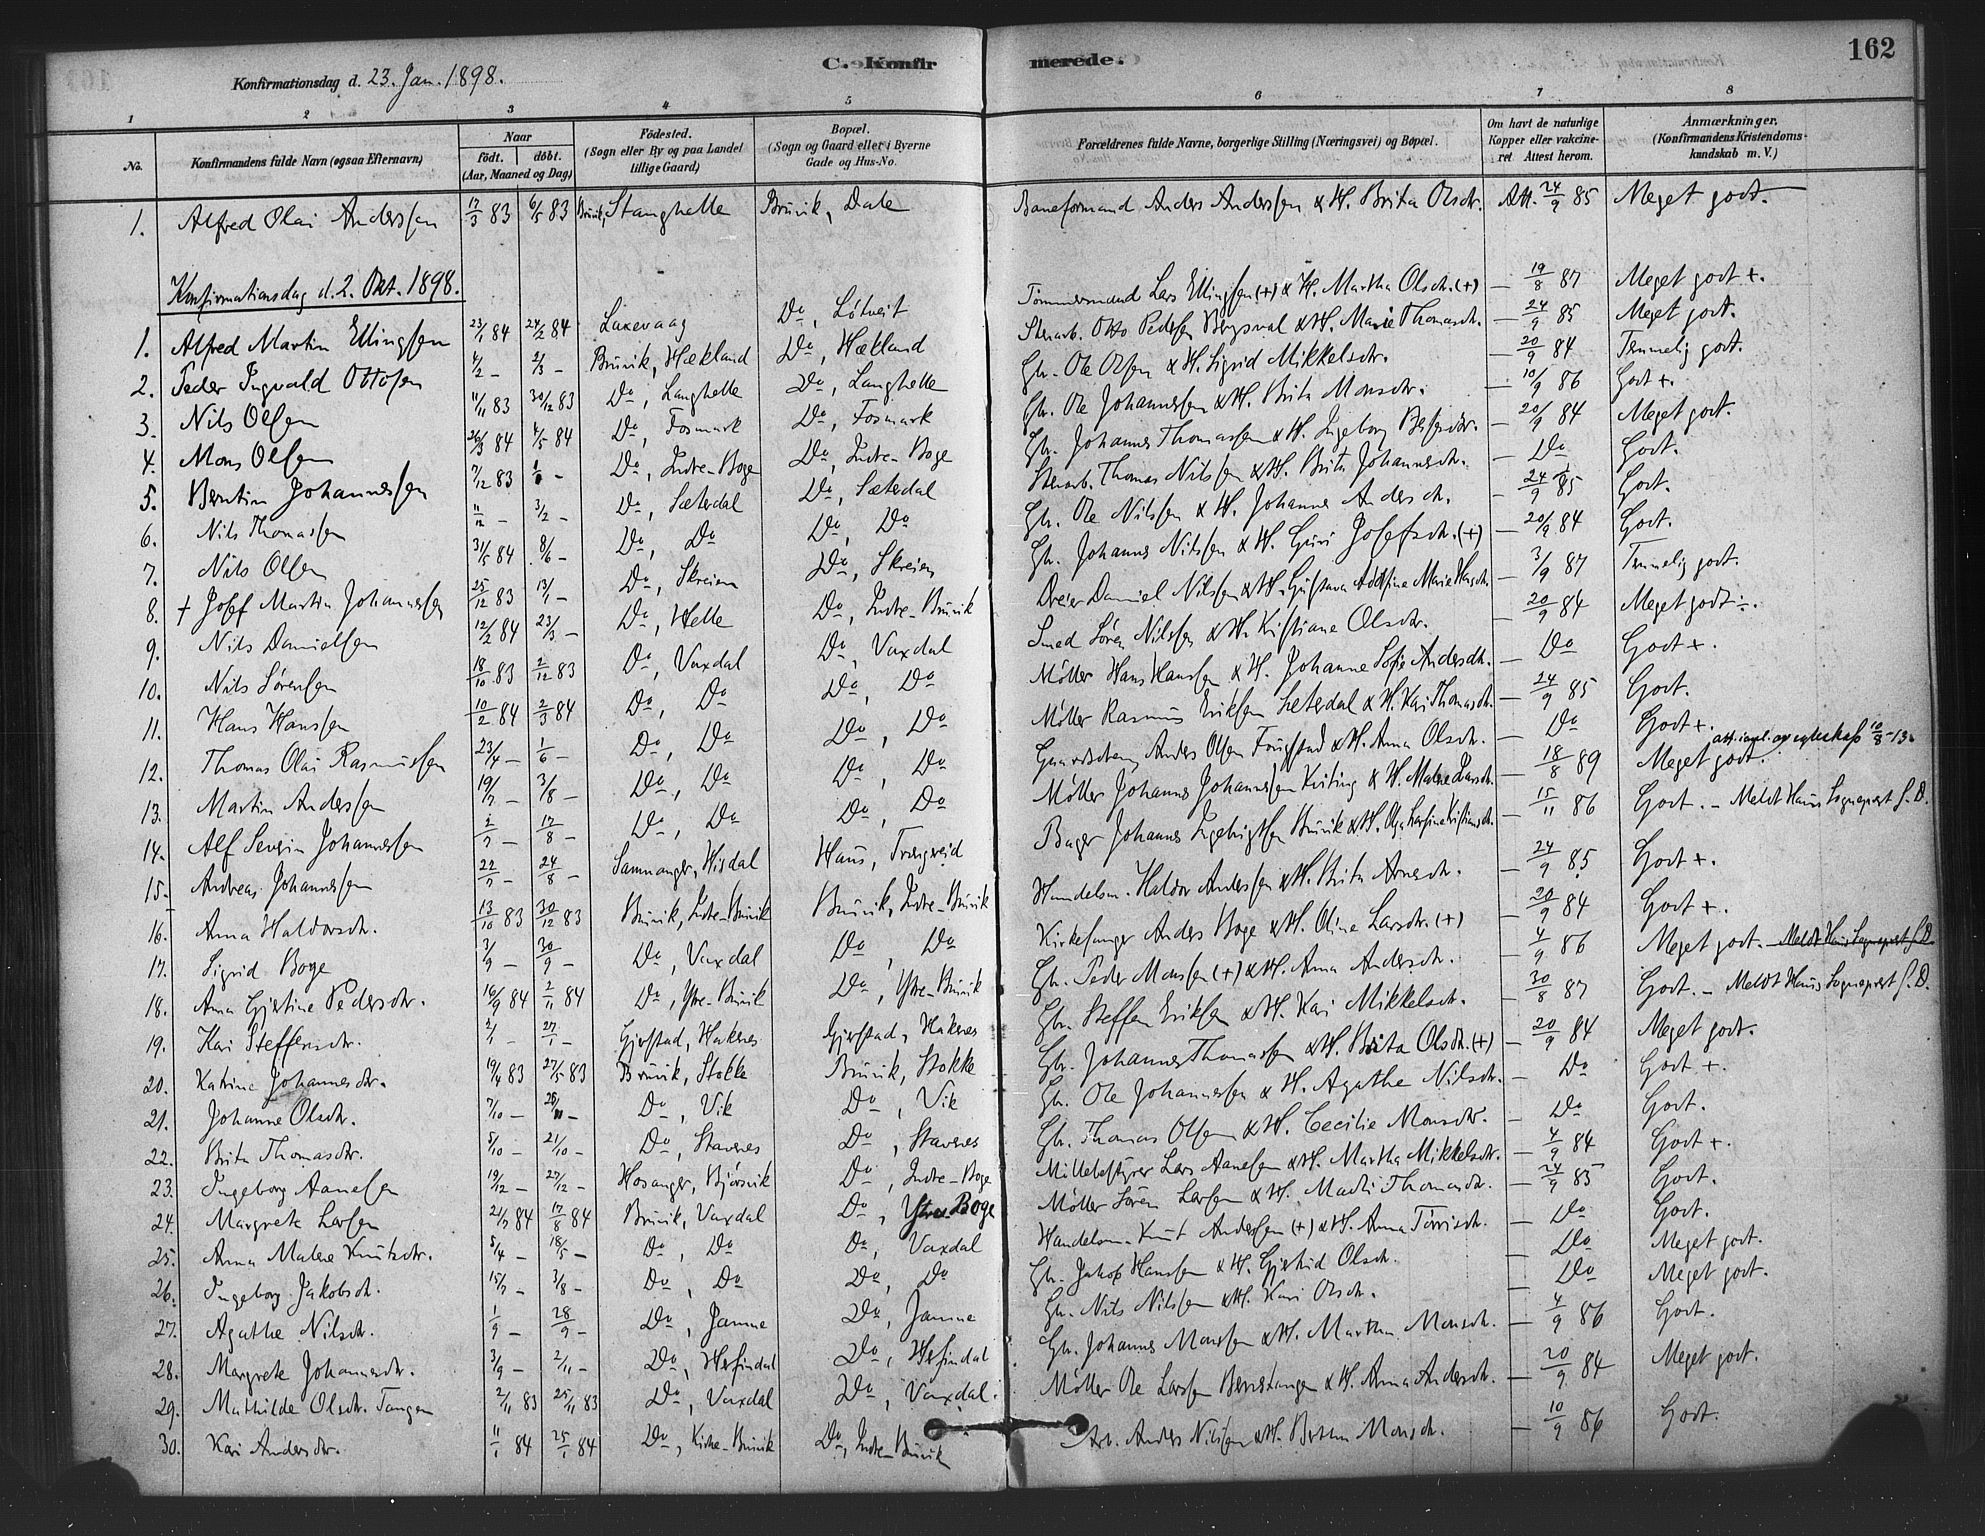 162
C. Konfirmerede.
Konfirmationsdag d. 23. Jan. 1898.
1 2 3 4 5 6 7 8
No. Konfirmandens fulde Navn (ogsaa Efternavn) Naar født. døbt. (Aar, Maaned og Dag) Fødested. (Sogn eller By og paa Landet tillige Gaard) Bopæl. (Sogn og Gaard eller i Byerne Gade og Hus-No. Forældrenes fulde Navne, borgerlige Stilling (Næringsvei) og Bopæl. Om havt de naturlige Kopper eller vakcineret Attest herom. Anmærkninger. (Konfirmandens Kristendomskundskab m. V.)
1. Alfred Olai Anderssen 17/3 83 6/5 83 Bruvik, Stanghelle Bruvik, Dale Baneformand Anders Anderssen & H. Brita Olsdtr. Att. 24/9 85 Meget godt.
Konfirmationsdag d. 2. Okt. 1898.
1. Alfred Martin Ellingsen 23/1 84 24/2 84 Laxevaag Do, Løtveit Tømmermand Lars Ellingsen (+) & H. Martha Olsdtr. (+) — 19/8 87 Meget godt +.
2. Peder Ingvald Ottosen 4/2 — 2/3 — Bruvik, Hækland Do, Hækland Stenarb. Otto Pedersen & H. Marie Thomasdtr. — 24/9 85 Meget godt.
3. Nils Olsen 11/11 83 30/12 83 Do, Langhelle Do, Langhelle Gbr. Ole Olsen & H. Sigrid Mikkelsdtr. — 20/9 84 Temmelig godt.
4. Mons Olsen 26/3 84 4/5 84 Do, Fosmark Do, Fosmark Gbr. Ole Johannessen & H. Brita Monsdtr. — 10/9 86 Godt +.
5. Berntin Johannessen 7/12 83 — Do, Indre-Boge Do, Indre-Boge Gbr. Johannes Thomassen & H. Ingeborg — 20/9 84 Meget godt.
6. Nils Thomassen 11/12 — 3/2 — Do, Sæterdal Do, Sæterdal Stenarb. Thomas Nilssen & H. Brita Johannesdtr. — Do Godt.
7. Nils Olsen 31/5 84 8/6 — Do, Do Do, Do Gbr. Ole Nilssen & H. Johanne Andersdtr. — 24/9 85 Godt.
8. + Josef Martin Johannessen 25/12 83 13/1 — Do, Skreien Do, Skreien Gbr. Johannes Nilssen & H. Guri Josefsdtr. (+) — 20/9 84 Godt.
9. Nils Danielsen 12/2 84 23/3 — Do, Helle Do, Indre-Bruvik Dreier Daniel Nilssen & H. Gustava Adolfine Marie — 3/9 87 Temmelig godt.
10. Nils Sørensen 18/10 83 2/12 83 Do, Vaxdal Do, Vaxdal Smed Søren Nilssen & H. Kristiane Olsdtr. — 20/9 84 Meget godt ÷.
11. Hans Hanssen 10/2 84 2/3 84 Do, Do Do, Do Møller Hans Hanssen & H. Johanne Sofie Andersdtr. — Do Godt +.
12. Thomas Olai Rasmussen 23/4 — 1/6 — Do, Do Do, Do Møller Rasmus Eriksen Seterdal & H. Kari Thomasdtr. — 24/9 85 Godt.
13. Martin Anderssen 19/7 — 3/8 — Do, Do Do, Do Anders Olsen & H. Anna Olsdtr. — Do Godt +.
14. Alf Severin Johannessen 2/7 — 17/8 — Do, Do Do, Do Møller Johannes Johannessen & H. Malene Larsdtr. — 18/8 89 Meget godt. 10/8-13.
15. Andreas Johannessen 22/7 — 24/8 — Samnanger, Hisdal Haus, Trengereid Bager Johannes Ingebrigtsen Bruvik & H. Olga — 15/11 86 Godt. — Meldt Haus Sognepræst s. D.
16. Anna Haldorsdtr. 13/10 83 30/12 83 Bruvik, Indre-Bruvik Bruvik, Indre-Bruvik Handelsm. Haldor Anderssen & H. Brita Arnesdtr. — 24/9 85 Godt +.
17. Sigrid Boge 3/9 — 30/9 — Do, Vaxdal Do, Do Kirkesanger Anders Boge & H. Oline Larsdtr. (+) — 20/9 84 Godt +.
18. Anna Gjertine Pedersdtr. 16/9 84 2/11 84 Do, Ytre-Bruvik Do, Ytre-Bruvik Gbr. Peder Monssen (+) & H. Anna Andersdtr. — 4/9 86 Meget godt. — Meldt Haus Sognepræst s. D.
19. Kari Steffensdtr. 2/1 — 27/1 — Gjerstad, Hakenes Gjerstad, Hakenes Gbr. Steffen Eriksen & H. Kari Mikkelsdtr. — 30/8 87 Godt. — Meldt Haus Sognepræst s. D.
20. Katrine Johannesdtr. 19/4 83 27/5 83 Bruvik, Stokke Bruvik, Stokke Gbr. Johannes Thomassen & H. Brita Olsdtr. (+) — 20/9 84 Meget godt.
21. Johanne Olsdtr. 7/10 — Do, Vik Do, Vik Gbr. Ole Johannessen & H. Agathe Nilsdtr. — Do Godt +.
22. Brita Thomasdtr. 5/10 — 21/10 — Do, Stavenes Do, Stavenes Gbr. Thomas Olsen & H. Cecilie Monsdtr. — Do Godt.
23. Ingeborg Aanesen 19/12 — 27/12 — Hosanger, Bjørsvik Do, Indre-Boge Møllebestyrer Lars Aanesen & H. Martha Mikkelsdtr. — 4/9 84 Godt +.
24. Margrete Larsen 21/7 84 17/8 84 Bruvik, Vaxdal Do, Ytre Boge Møller Søren Larsen & H. Thomasdtr. — 24/9 85 Godt.
25. Anna Malene Knutsdtr. 5/4 — 18/5 — Do, Do Do, Vaxdal Handelsm. Knut Anderssen (+) & H. Anna — Do Godt.
26. Ingeborg Jakobsdtr. 15/7 — 3/8 — Do, Do Do, Do Gbr. Jakob Hanssen & H. Gjertrud Olsdtr. — Do Meget godt.
27. Agathe Nilsdtr. 1/9 — 28/9 — Do, Jamne Do, Jamne Gbr. Nils Nilssen & H. Kari Olsdtr. — Do Meget godt.
28. Margrete Johannesdtr. 3/9 — 2/11 — Do, Herfindal Do, Herfindal Gbr. Johannes Monssen & H. Martha Monsdtr. — 4/9 86 Godt.
29. Mathilde Olsdtr. Tangen 2/11 83 25/11 83 Do, Vaxdal Do, Vaxdal. Møller Ole Larssen & H. Anna Andersdtr. — 20/9 84 Meget godt.
30. Kari Andersdtr. 11/1 84 25/1 84 Do, Kirke-Bruvik Do, Indre-Bruvik Arb. Anders Nilssen & H. Monsdtr. — 10/9 86 Godt.